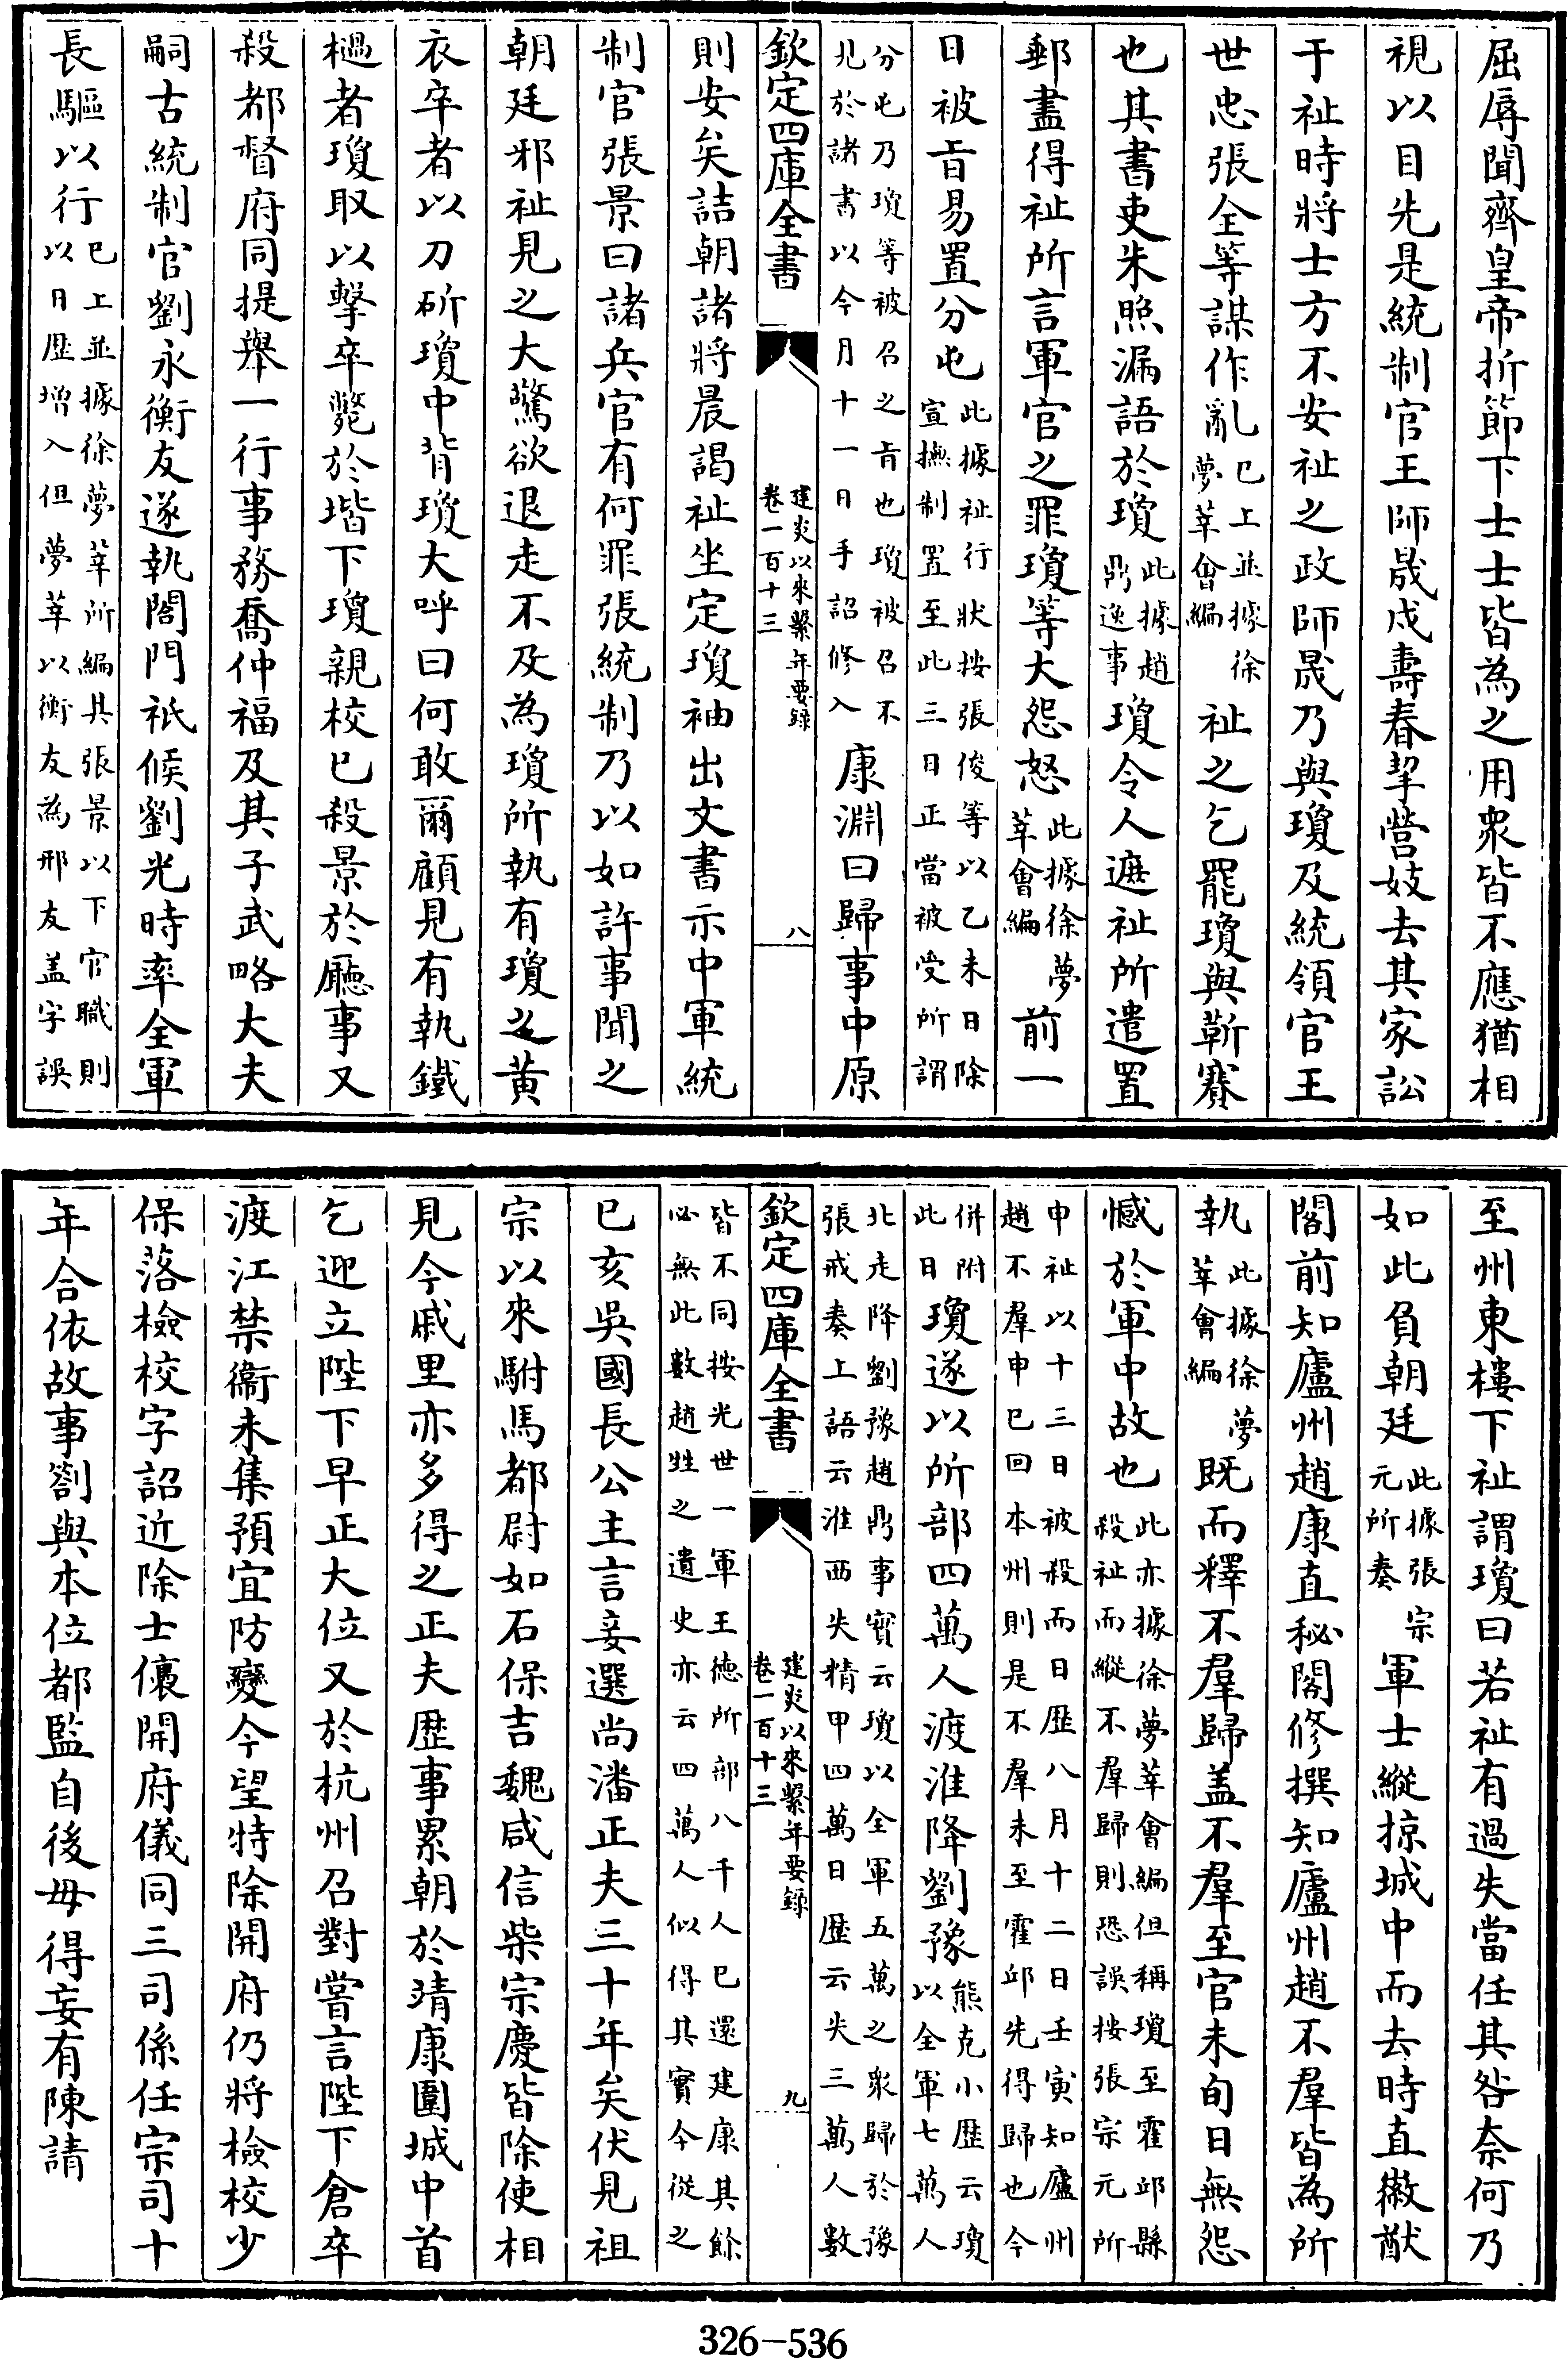 屈辱聞齊皇帝折節下士士皆為之用衆皆不應猶相
視以目先是統制官王師晟戍壽春挈營妓去其家訟
于祉時將士方不安祉之政師晟乃與瓊及統領官王
世忠張全等謀作亂已上並據徐夢莘會編祉之乞罷瓊與靳賽
也其書吏朱照漏語於瓊此據趙鼎逸事瓊令人遮祉所遣置
郵盡得祉所言軍官之罪瓊等大怨怒此據徐夢莘會編前一
日被旨易置分屯此據祉行狀按張俊等以乙未日除宣撫制置至此三日正當被受所謂
分屯乃瓊等被召之旨也瓊被召不見於諸書以今月十一日手詔修入康淵曰歸事中原
欽定四庫全書 建炎以來繫年要録卷一百十三 八
則安矣詰朝諸將晨謁祉坐定瓊袖出文書示中軍統
制官張景曰諸兵官有何罪張統制乃以如許事聞之
朝廷邪祉見之大驚欲退走不及為瓊所執有瓊之黄
衣卒者以刀斫瓊中背瓊大呼曰何敢爾顧見有執鐵
檛者瓊取以擊卒斃於堦下瓊親校已殺景於廳事又
殺都督府同提舉一行事務喬仲福及其子武略大夫
嗣古統制官劉永衡友遂執閤門祗候劉光時率全軍
長驅以行已上並據徐夢莘所編其張景以下官職則以日歴增入但夢莘以衡友為邢友盖字誤
至州東樓下祉謂瓊曰若祉有過失當任其咎奈何乃
如此負朝廷此據張宗元所奏軍士縱掠城中而去時直徽猷
閣前知廬州趙康直秘閣修撰知廬州趙不羣皆為所
執此據徐夢莘會編既而釋不羣歸盖不羣至官未旬日無怨
憾於軍中故也此亦據徐夢莘會編但稱瓊至霍邱縣殺祉而縱不羣歸則恐誤按張宗元所
申祉以十三日被殺而日歴八月十二日壬寅知廬州趙不羣申已回本州則是不羣未至霍邱先得歸也今
併附此日瓊遂以所部四萬人渡淮降劉豫熊克小歴云瓊以全軍七萬人
北走降劉豫趙鼎事實云瓊以全軍五萬之衆歸於豫張戒奏上語云淮西失精甲四萬日歴云失三萬人數
欽定四庫全書 建炎以來繫年要録卷一百十三 九
皆不同按光世一軍王德所部八千人已還建康其餘必無此數趙甡之遺史亦云四萬人似得其實今從之
已亥吳國長公主言妾選尚潘正夫三十年矣伏見祖
宗以來駙馬都尉如石保吉魏咸信柴宗慶皆除使相
見今戚里亦多得之正夫歴事累朝於靖康圍城中首
乞迎立陛下早正大位又於杭州召對嘗言陛下倉卒
渡江禁衞未集預宜防變今望特除開府仍將檢校少
保落檢校字詔近除士㒟開府儀同三司係任宗司十
年合依故事劄與本位都監自後毋得妄有陳請
326-536